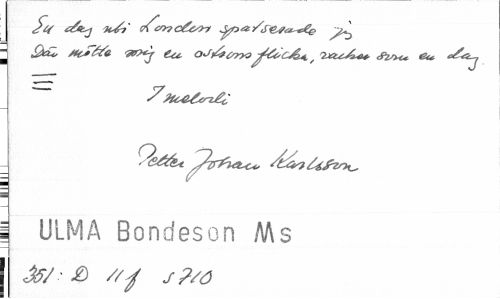 En dag uti London spatserade jg
Där mötte mig en ostronsflicka, vacker som en dag.
I melodi
Petter Johan Karlsson
ULMA Bondeson Ms
351: D 11f s 710